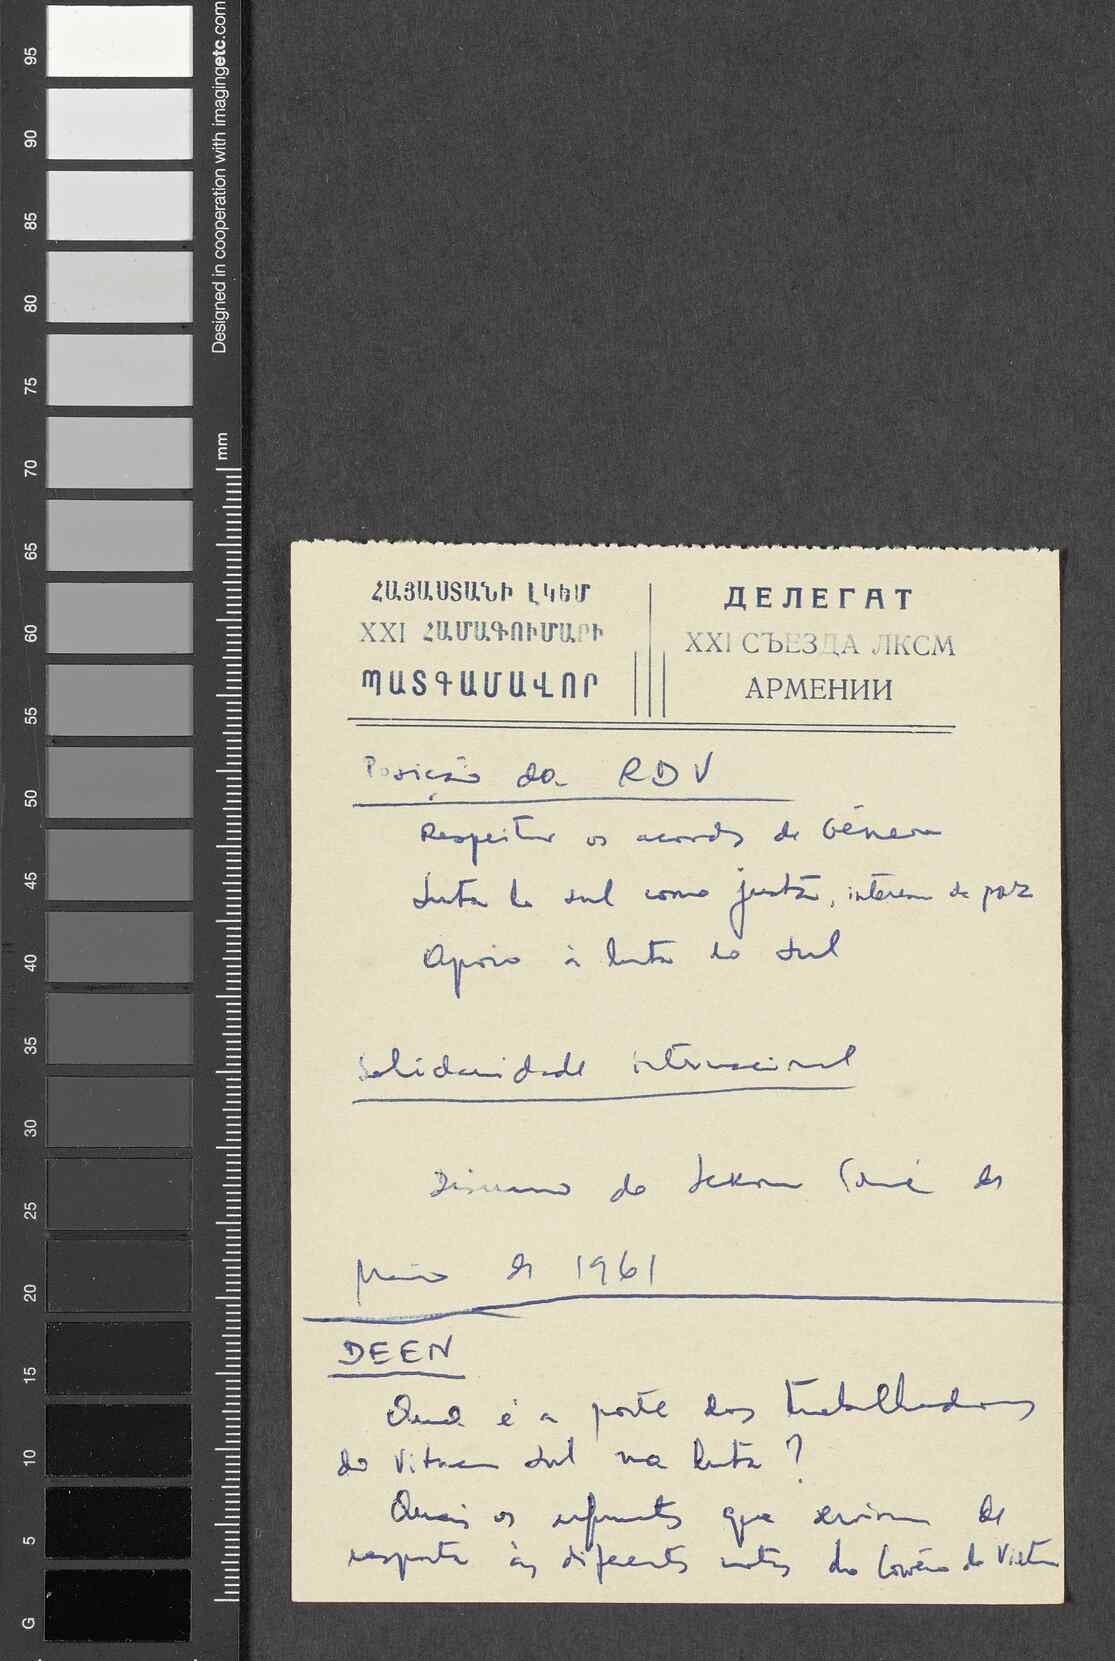 95
90
85
80
75
70
65
60
55
50
45
40
35
30
25
20
15
10
5
G
Designed in cooperation with imagingetc.com
mm
ՀԱՅԱՍՏԱՆԻ ԼԿԵՄ
XXI ՀԱՄԱԳՈՒՄԱՐԻ
ՊԱՏԳԱՄԱՎՈՐ
ДЕЛЕГАТ
XXI СЪЕЗДА ЛКСМ
АРМЕНИИ
Posição da RDV
Respeitar os acordos de Génève
Luta do sul como justa, interesse de paz
Apoio à luta do sul
Solidariedade internacional
Discurso do Sekou Touré de
Maio de 1961
DEEN
Qual é a parte dos trabalhadores
do Vitnam Sul na luta?
Quais os que serviram de
resposta às diferentes notas do do Vietn